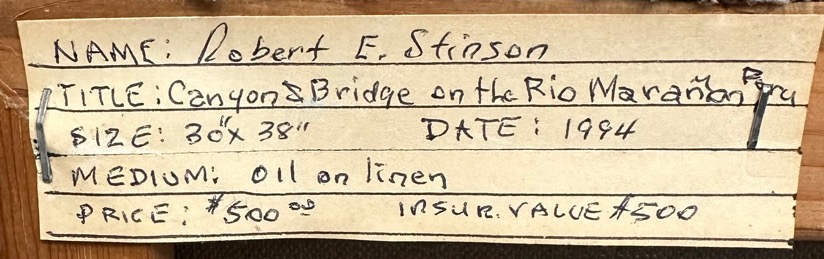 NAME: Robert E. Stinson
TITLE: Canyon & Bridge on the Rio Marañon Peru
SIZE: 30"x 38" DATE: 1994
MEDIUM: oil on linen
PRICE: $500.00 INSUR. VALUE $500